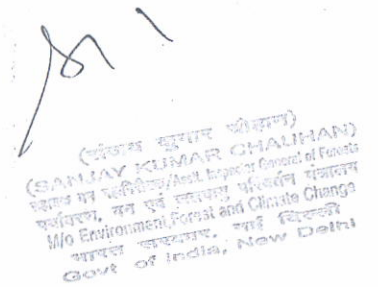 (संजय कुमार चौहान)
(SANJAY KUMAR CHAUHAN)
सहायक वन महानिरीक्षक/Asstt. Inspector General of Forests
पर्यावरण, वन एवं जलवायु परिवर्तन मंत्रालय
M/o Environment,Forest and Climate Change
भारत सरकार, नई दिल्ली
Govt of India, New Delhi